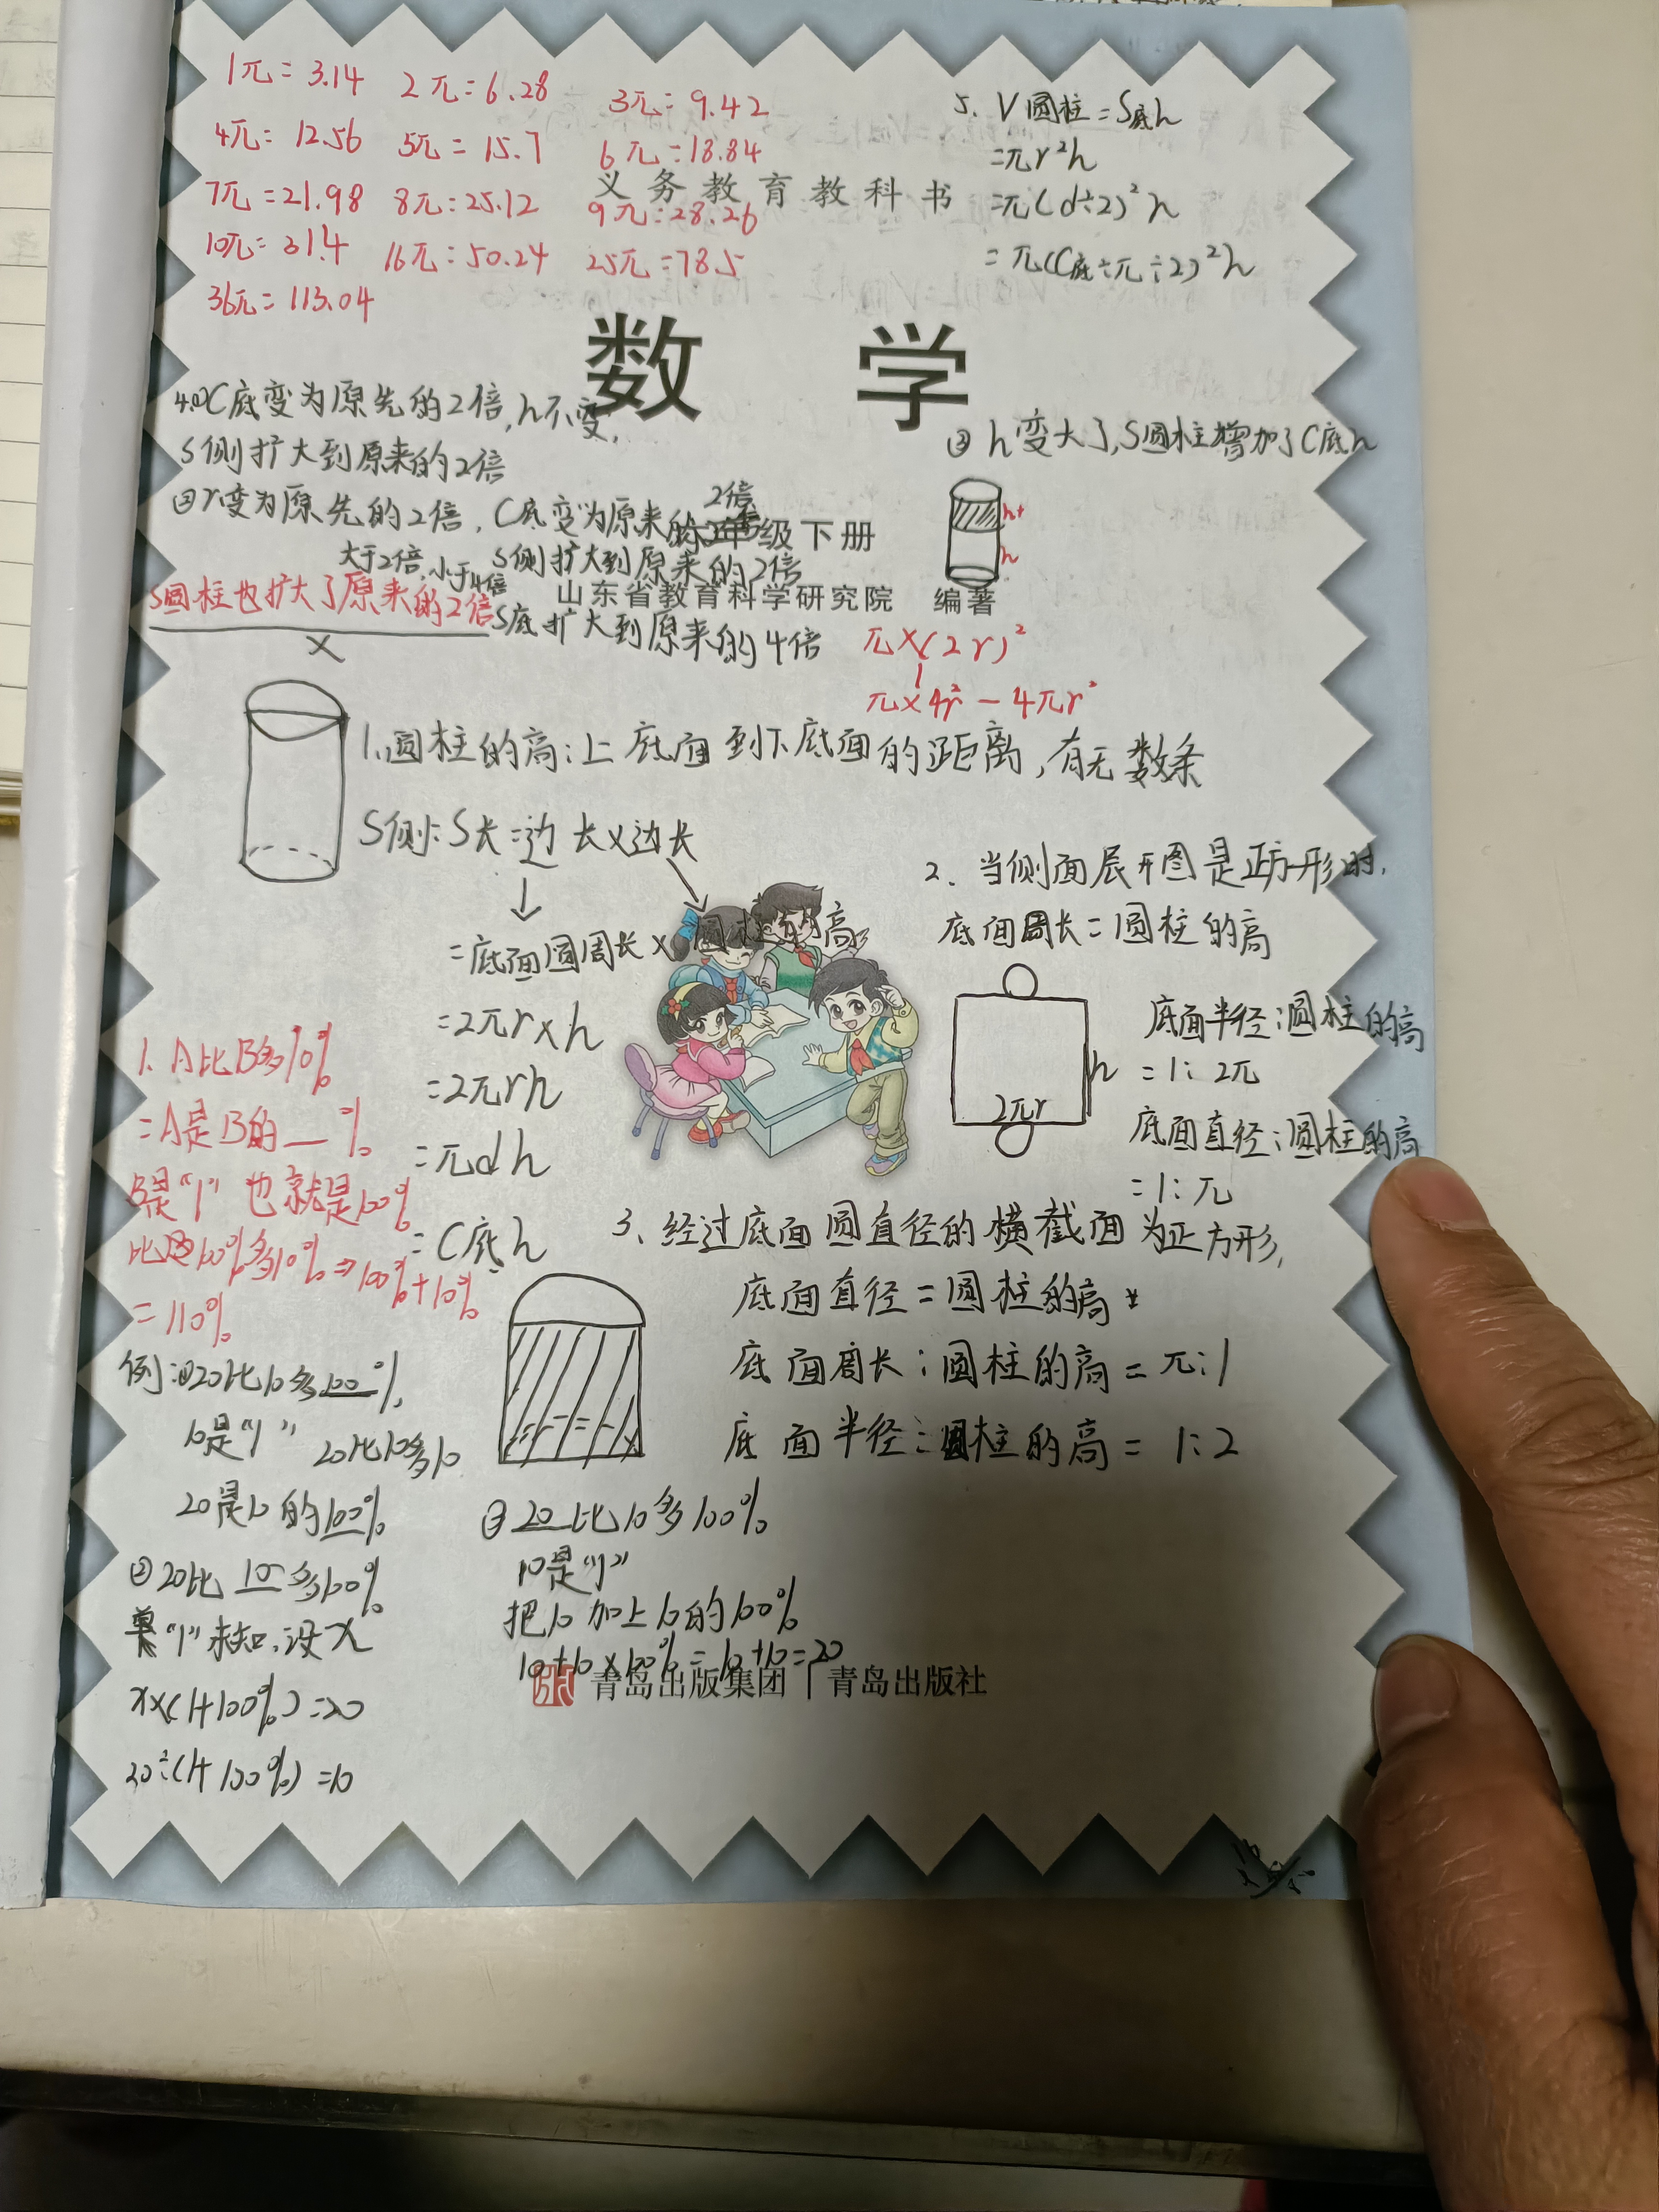 1π=3.14 2π=6.28 3π=9.42
4π=12.56 5π=15.7 6π=18.84
7π=21.98 8π=25.12 9π=28.26
10π=31.4 16π=50.24 25π=78.5
36π=113.04
5、V圆柱=S底h
=πr²h
=π(d÷2)²h
=π(C底÷π÷2)²h
义务教育教科书
数学
4.①C底变为原先的2倍,h不变,
S侧扩大到原来的2倍
②r变为原先的2倍,C底变为原来的2倍
S侧扩大到原来的2倍
大于2倍,小于4倍
S圆柱也扩大了原来的2倍
×
S底扩大到原来的4倍
③h变大了,S圆柱增加了C底h
h+
h
级下册
山东省教育科学研究院 编著
π×(2r)²
π×4r²-4πr²
1、圆柱的高:上底面到下底面的距离,有无数条
S侧:S长=边长×边长
=底面圆周长×圆柱的高
=2πr×h
=2πrh
=πdh
=C底h
2、当侧面展开图是正方形时,
底面周长=圆柱的高
h
2πr
底面半径:圆柱的高
=1:2π
底面直径:圆柱的高
=1:π
3、经过底面圆直径的横截面为正方形,
底面直径=圆柱的高
底面周长:圆柱的高=π:1
底面半径:圆柱的高=1:2
1、A比B多10%
=A是B的__%
B是"1"也就是100%
100%多10%⇒100%+10%
=110%
例:①20比10多100%
10是"1" 20比10多10
20是10的100%
②20比10多100%
单"1"未知,设x
x×(1+100%)=20
20÷(1+100%)=10
③20比10多100%
10是"1"
把10加上10的100%
10+10×100%=10+10=20
青岛出版集团|青岛出版社